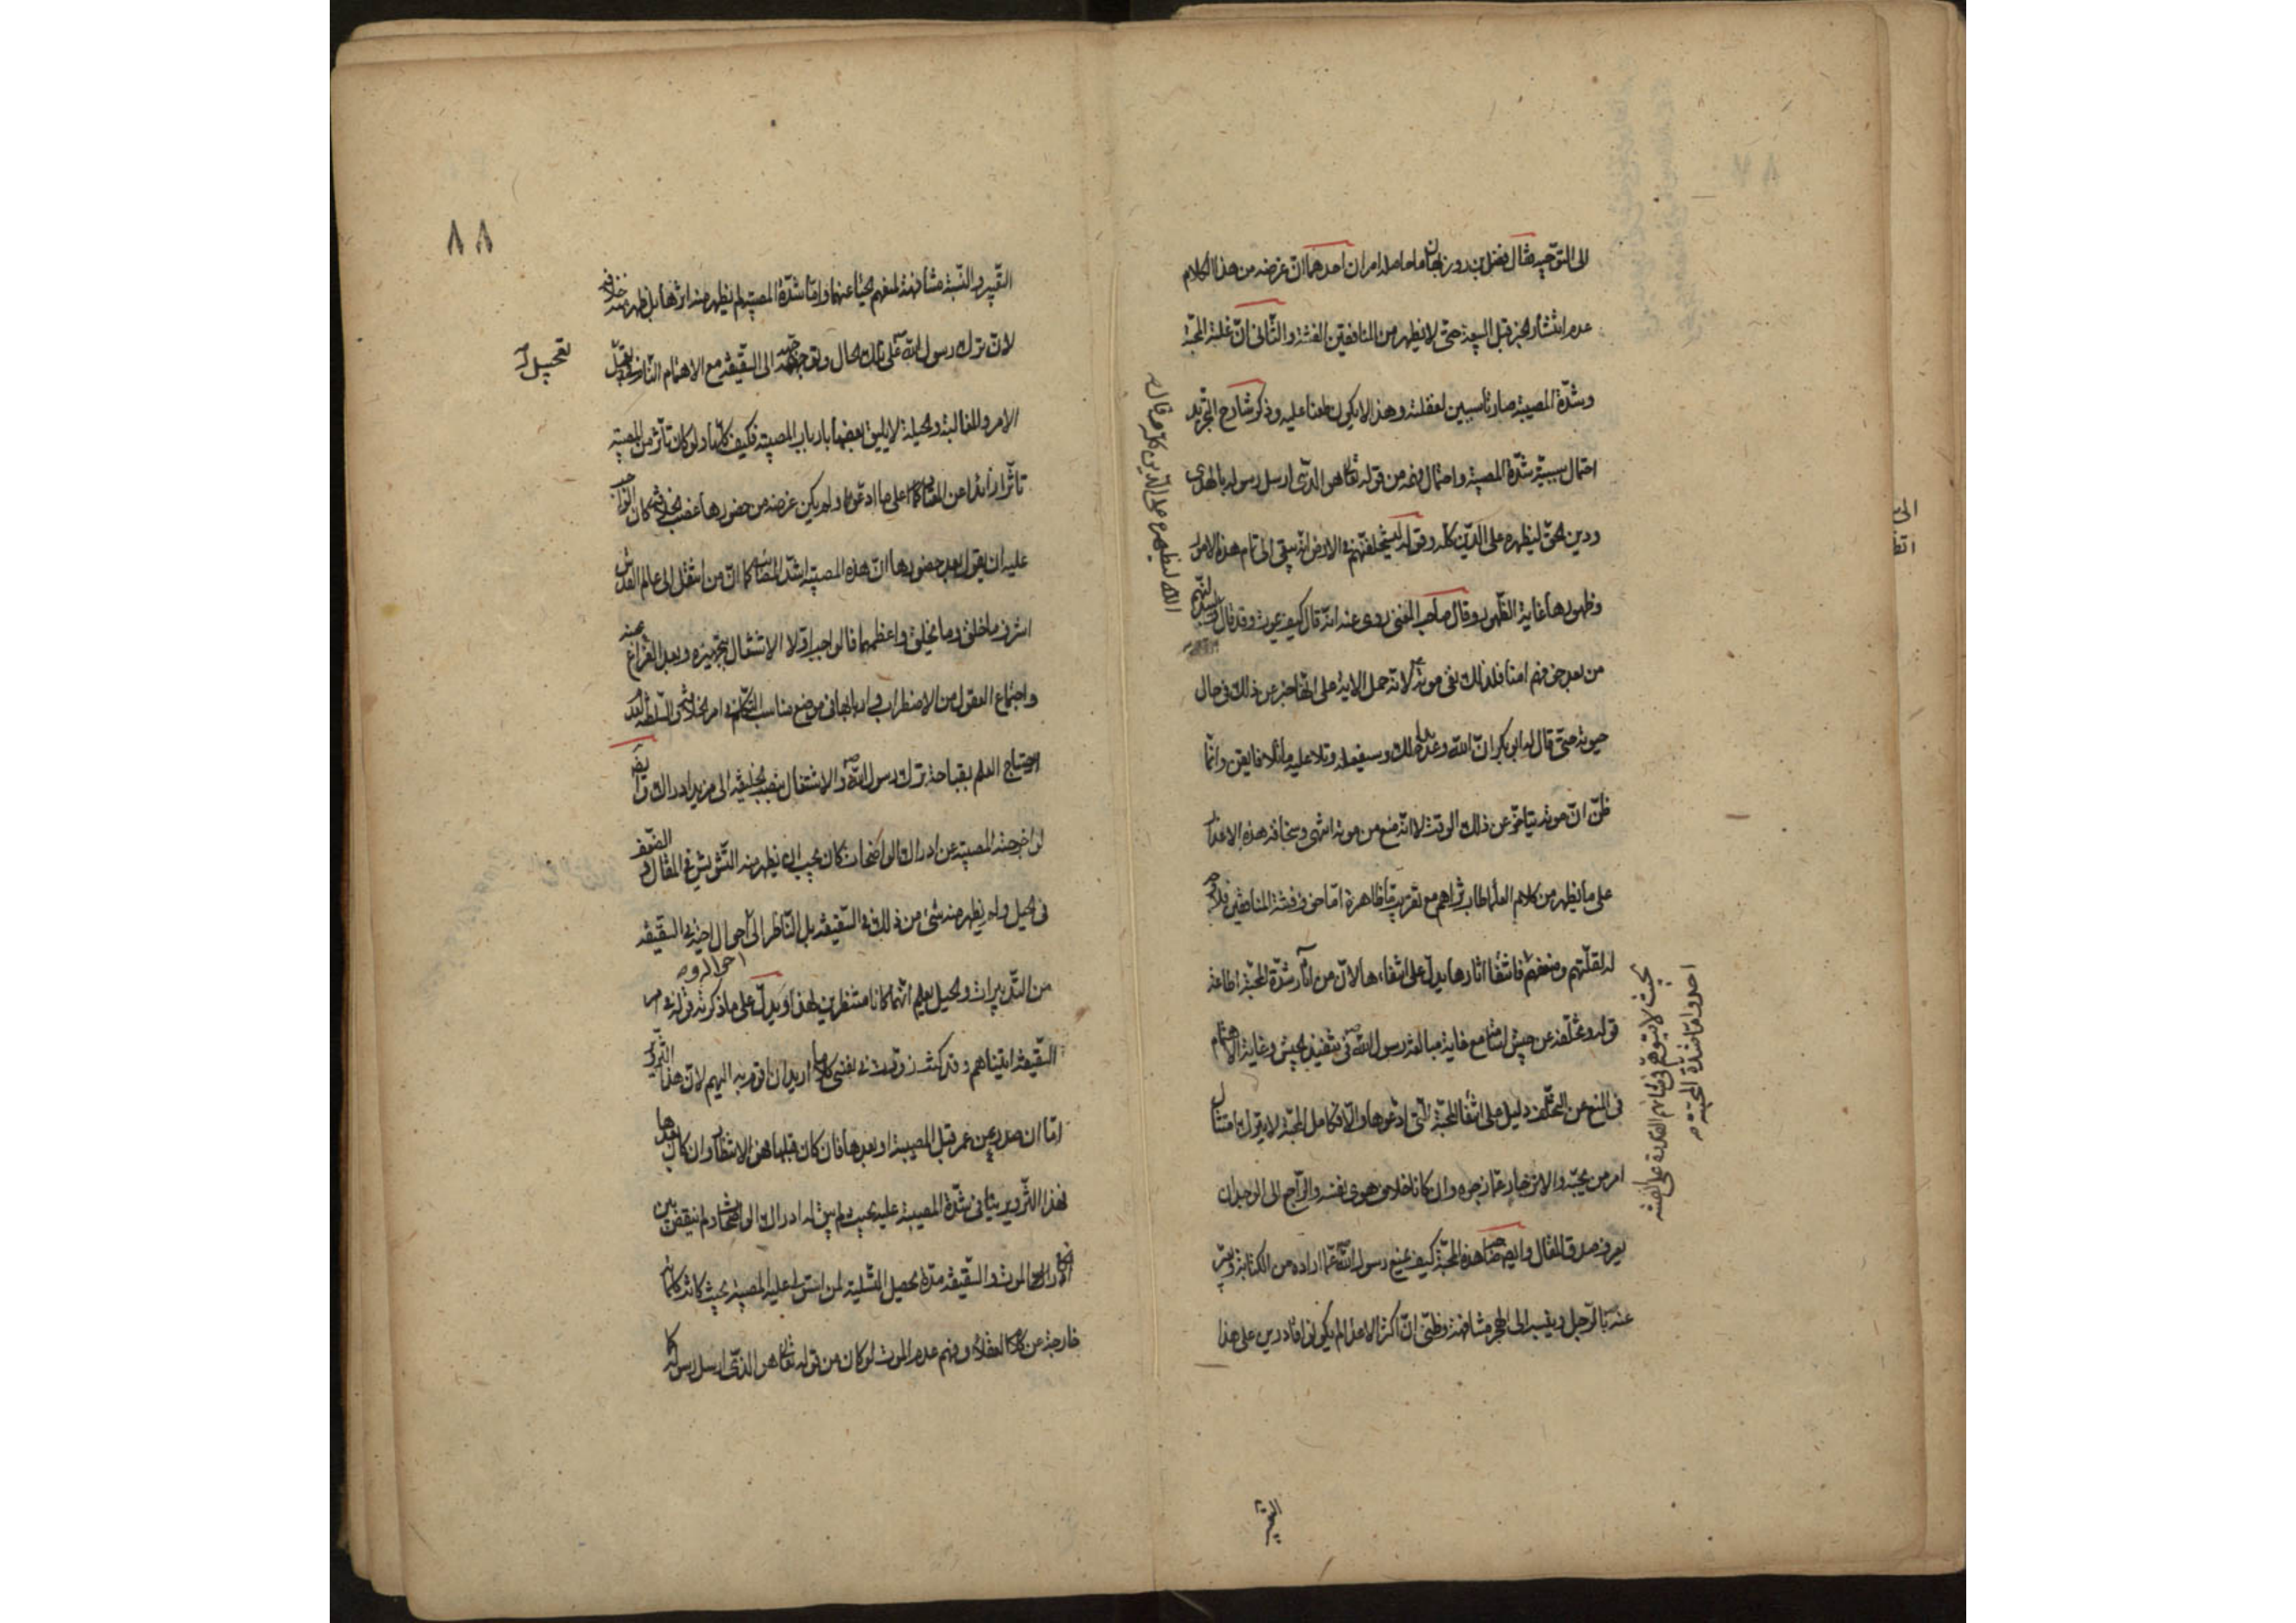 الى التوجيه فقال فضل بن روزبهان ما حاصله امران احدهما ان غرضه من هذا الكلام
عدم انتشار الخبر قبل البيعة حتى لا يظهر من المنافقين الفتنة والثاني ان غلبة المحبة
وشدة المصيبة صارتا سببين لغفلته وهذا لا يكون طعنا عليه وذكر شارح التجريد
احتمال سببية شدة المصيبة واحتمال فهمه من قوله تعالى هو الذي ارسل رسوله بالهدى
ودين الحق ليظهره على الدين كله وقوله ليستخلفنهم في الارض انه يبقى الى تمام هذه الامور
وظهورها غاية الظهور وقال صاحب المغني روى عنه انه قال كيف يموت وقد قال
الله ليظهره على الدين كله وقال
وليبدلنهم
من بعد خوفهم امنا فلذلك نفى موته لانه حمل الاية على انها خبر عن ذلك في حال
حيوته حتى قال له ابو بكر ان الله وعده بذلك وسيفعله وتلا عليه ما تلا فايقن وانما
ظن ان موته يتاخر عن ذلك الوقت لا انه منع من موته انتهى وسخافة هذه الاعذار
على ما يظهر من كلام العلماء طاب ثراهم مع تقريب ما ظاهرة اما خوف فتنة المنافقين فلا
بحيث لا يتوهم في شانهم القدرة على الفتنة
احد واما شدة المحبة
لقلتهم وضعفهم فانتفاء اثارها يدل على انتفاءها لان من اثار شدة المحبة اطاعة
قوله وتخلفه عن جيش اسامة مع غاية مبالغة رسول الله في تنفيذ الجيش وغاية الاهتمام
في المنع عن التخلف دليل على انتفاء المحبة التي ادعوها والا فكامل المحبة لا يترك امتثال
امر من يحبه والانزجار عما زجره وان كانا خلاف هوى نفسه والراجع الى الوجدان
يعرف صدق المقال وايضا صاحب هذه المحبة كيف يمنع رسول الله عما اراده من الكتابة ويعبر
عنه بالرجل وينسب الى الهجر مشافهة وظني ان اكثر الاعذار لم يكونوا قادرين على هذا
التعبير
٨٨
التعبير والنسبة مشافهة لمنعهم الحياء عنهما واما شدة المصيبة لم يظهر منه اثرها بل ظهر منه خلافه
لان ترك رسول الله على تلك الحال وتوجهه الى السقيفة مع الاهتمام التام
تعجيل
الامر والمغالبة والحيلة لا يليق بعضها بارباب المصيبة فكيف كلها ولو كان تاثر من المصيبة
تاثرا زائدا عن المعتاد كما على ما ادعوه ولم يكن غرضه من حضورها غصب الخلافة كان الواجب
عليه ان يقول بعد حضورها ان هذه المصيبة اشد المصائب كما ان من انتقل الى عالم القدس
اشرف ما خلق وما يخلق واعظمهما فالواجب اولا الاشتغال بتجهيزه وبعد الفراغ عنه
واجتماع العقول من الاضطراب في اي موضع مناسب التكلم في امر الخلافة والسلطنة
احتياج العلم بقباحة ترك رسول الله والاشتغال بنصب الخليفة الى مزيد ادراك وايضا
لو اخرجته المصيبة عن ادراك الواضحات كان يجب ان يظهر منه التشويش في المقال والضعف
في الحيل ولم يظهر منه شيء من ذلك في السقيفة بل الناظر الى احوال اخيه في السقيفة
من التدبيرات والحيل يعلم انهما كانا منتظرين لهذا ويدل على ما ذكرته قوله في
السقيفة اتيناهم وقد كنت زورت في نفسي كلاما اريد ان اقوم به اليهم لان هذا التزوير
اما ان صدر عن عمر قبل المصيبة او بعدها فان كان قبلها فهو الانتظار وان كان بعدها
فهذا التزوير ينافي شدة المصيبة عليه بحيث لم يبق له ادراك الواضحات ولم ينقض بين
الموت والسقيفة مدة يحصل التسلية لمن استولى عليه المصيبة بحيث كانه كلماته
خارجة عن كلام العقلاء وفهم عدم الموت لو كان من قوله تعالى هو الذي ارسل رسوله